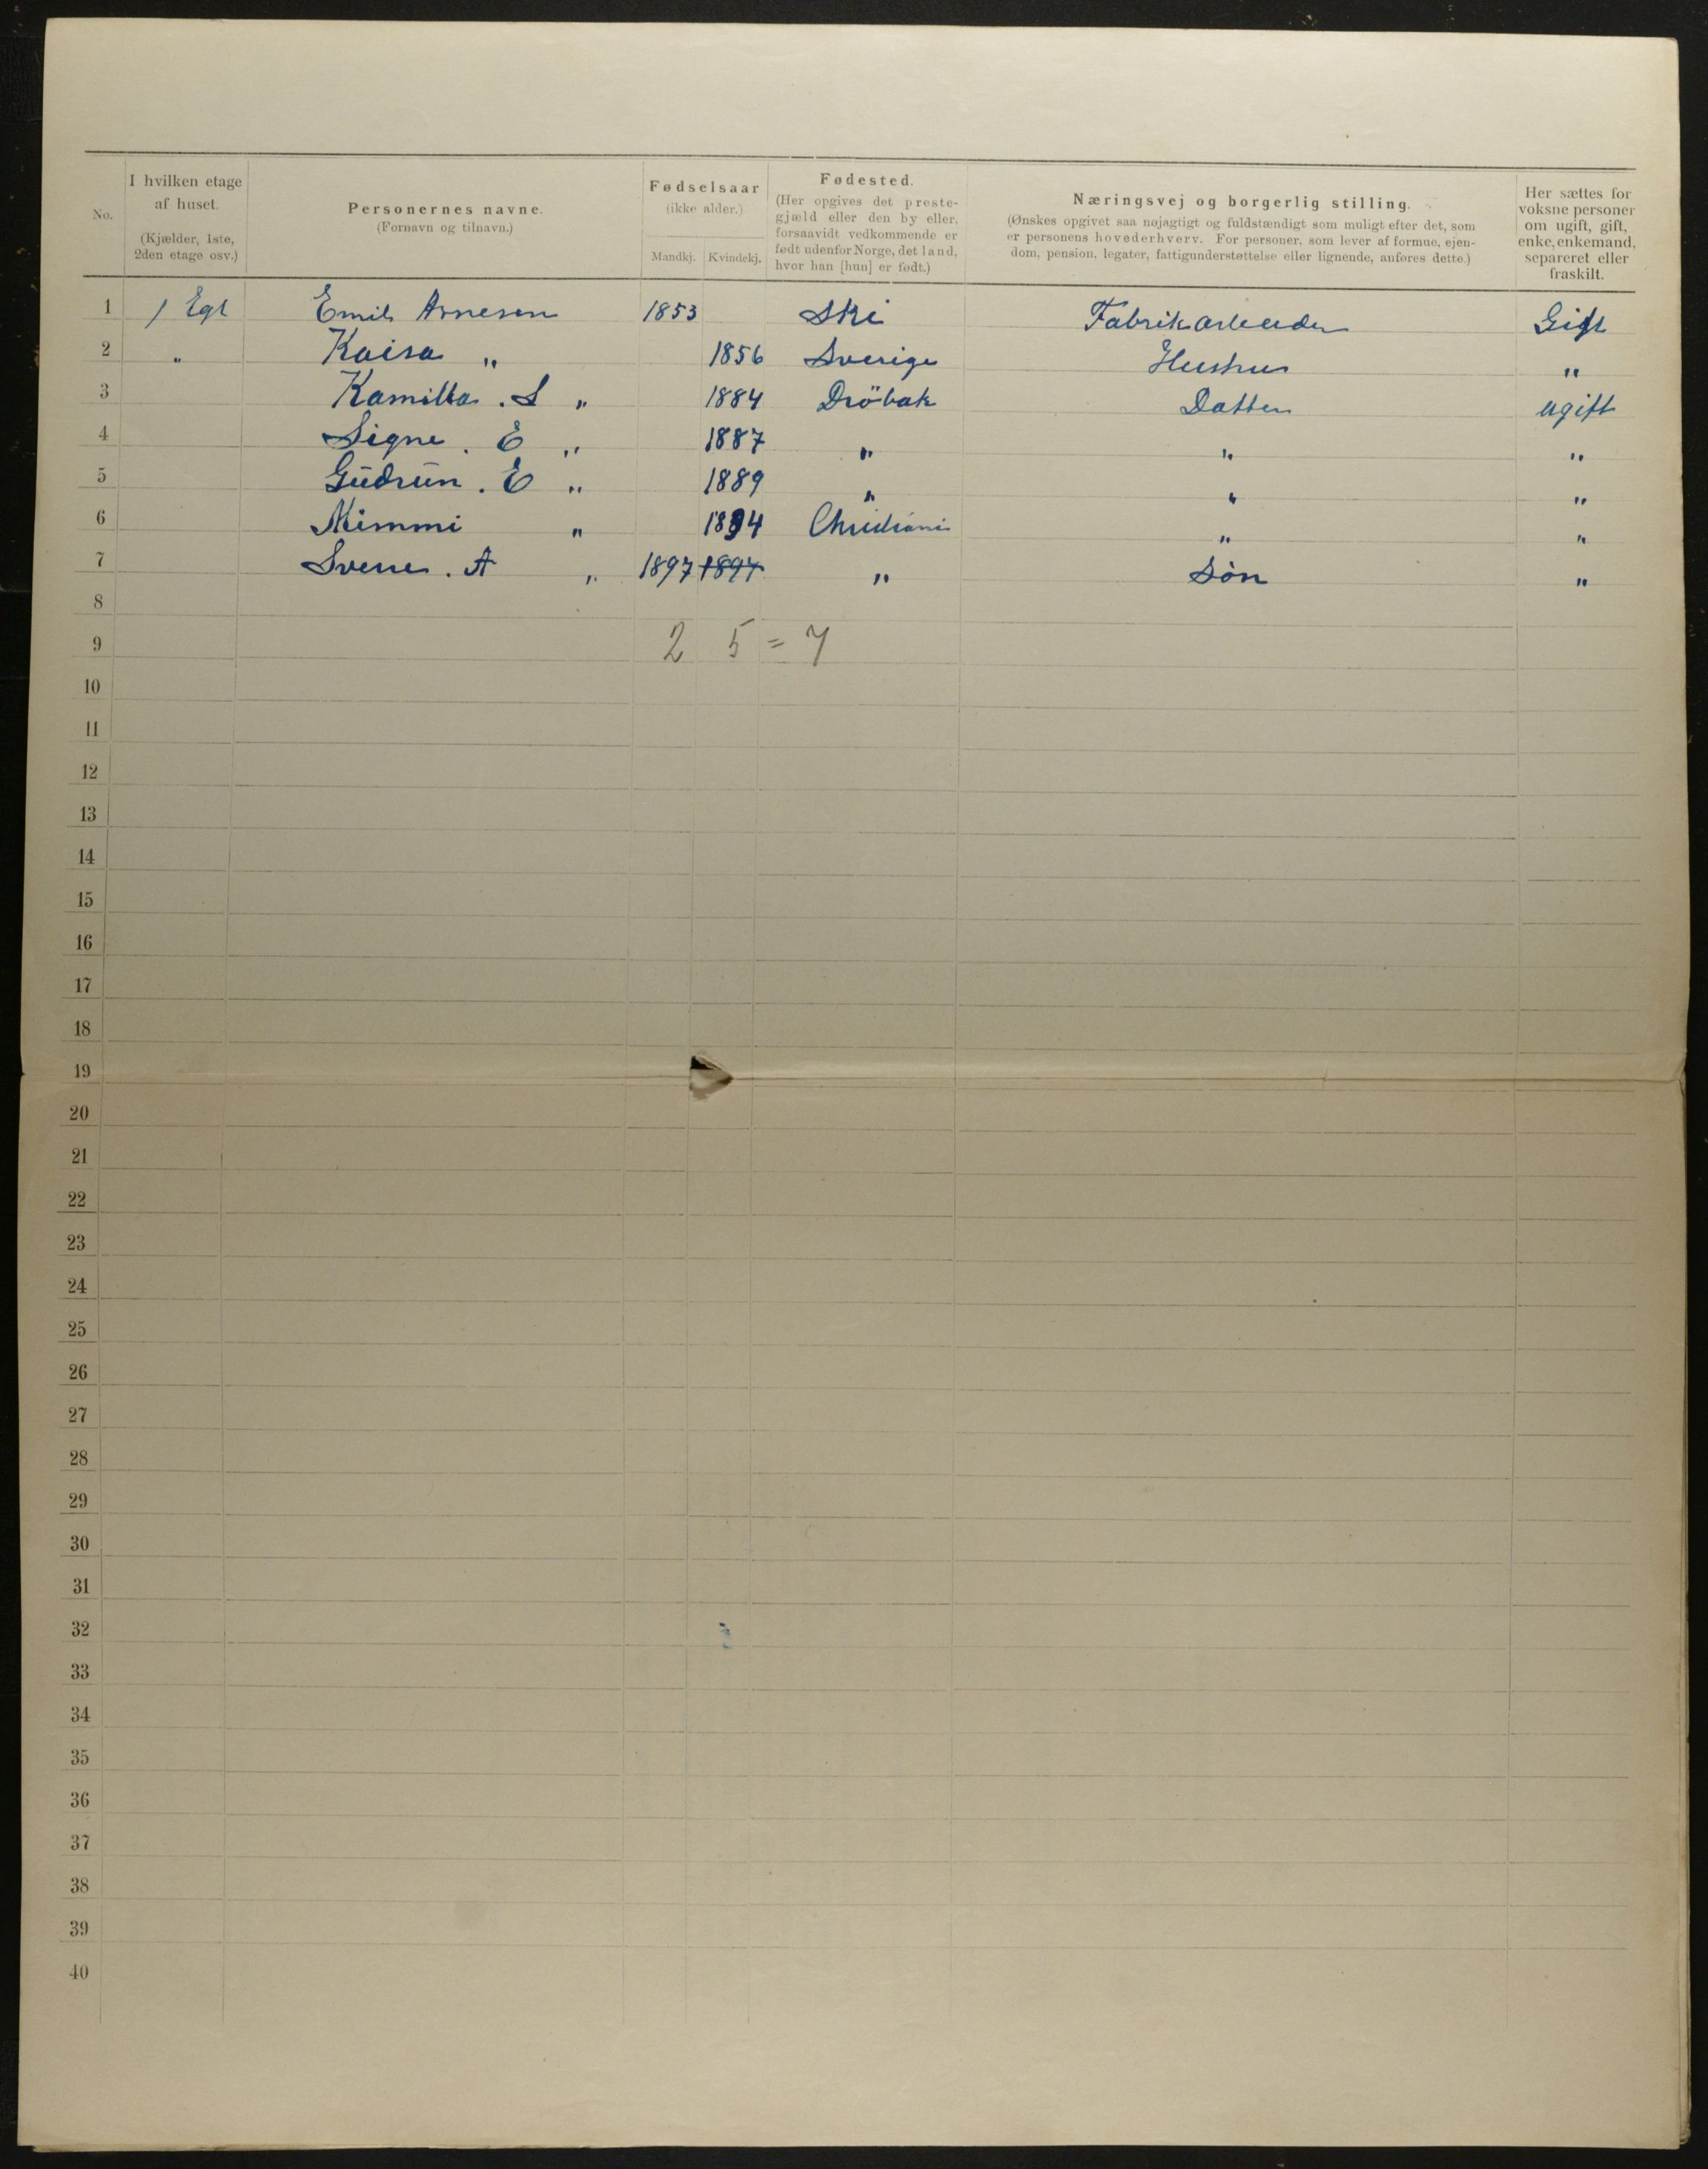 No.
I hvilken etage
af huset.
(Kjælder, 1ste,
2den etage osv.)
Personernes navne.
(Fornavn og tilnavn.)
Fødselsaar
(ikke alder.)
Mandkj. Kvindekj.
Fødested.
(Her opgives det preste-
gjæld eller den by eller,
forsaavidt vedkommende er
født udenfor Norge, det land,
hvor han [hun] er født.)
Næringsvej og borgerlig stilling.
(Ønskes opgivet saa nøjagtigt og fuldstændigt som muligt efter det, som
er personens hovederhverv. For personer, som lever af formue, ejen-
dom, pension, legater, fattigunderstøttelse eller lignende, anføres dette.)
Her sættes for
voksne personer
om ugift, gift,
enke, enkemand,
separeret eller
fraskilt.
1 1 Egt Emil Arnesen 1853 Ski Fabrikarbeider Gift
2 " Kaisa " 1856 Sverige Hustru "
3 Kamilla . S " 1884 Dröbak Datter ugift
4 Signe . E " 1887 " " "
5 Gudrun . E " 1889 " " "
6 Mimmi " 1894 Christiani " "
7 Sverre . A " 1897 1897 " Sön "
8
9 2 5 = 7
10
11
12
13
14
15
16
17
18
19
20
21
22
23
24
25
26
27
28
29
30
31
32
33
34
35
36
37
38
39
40